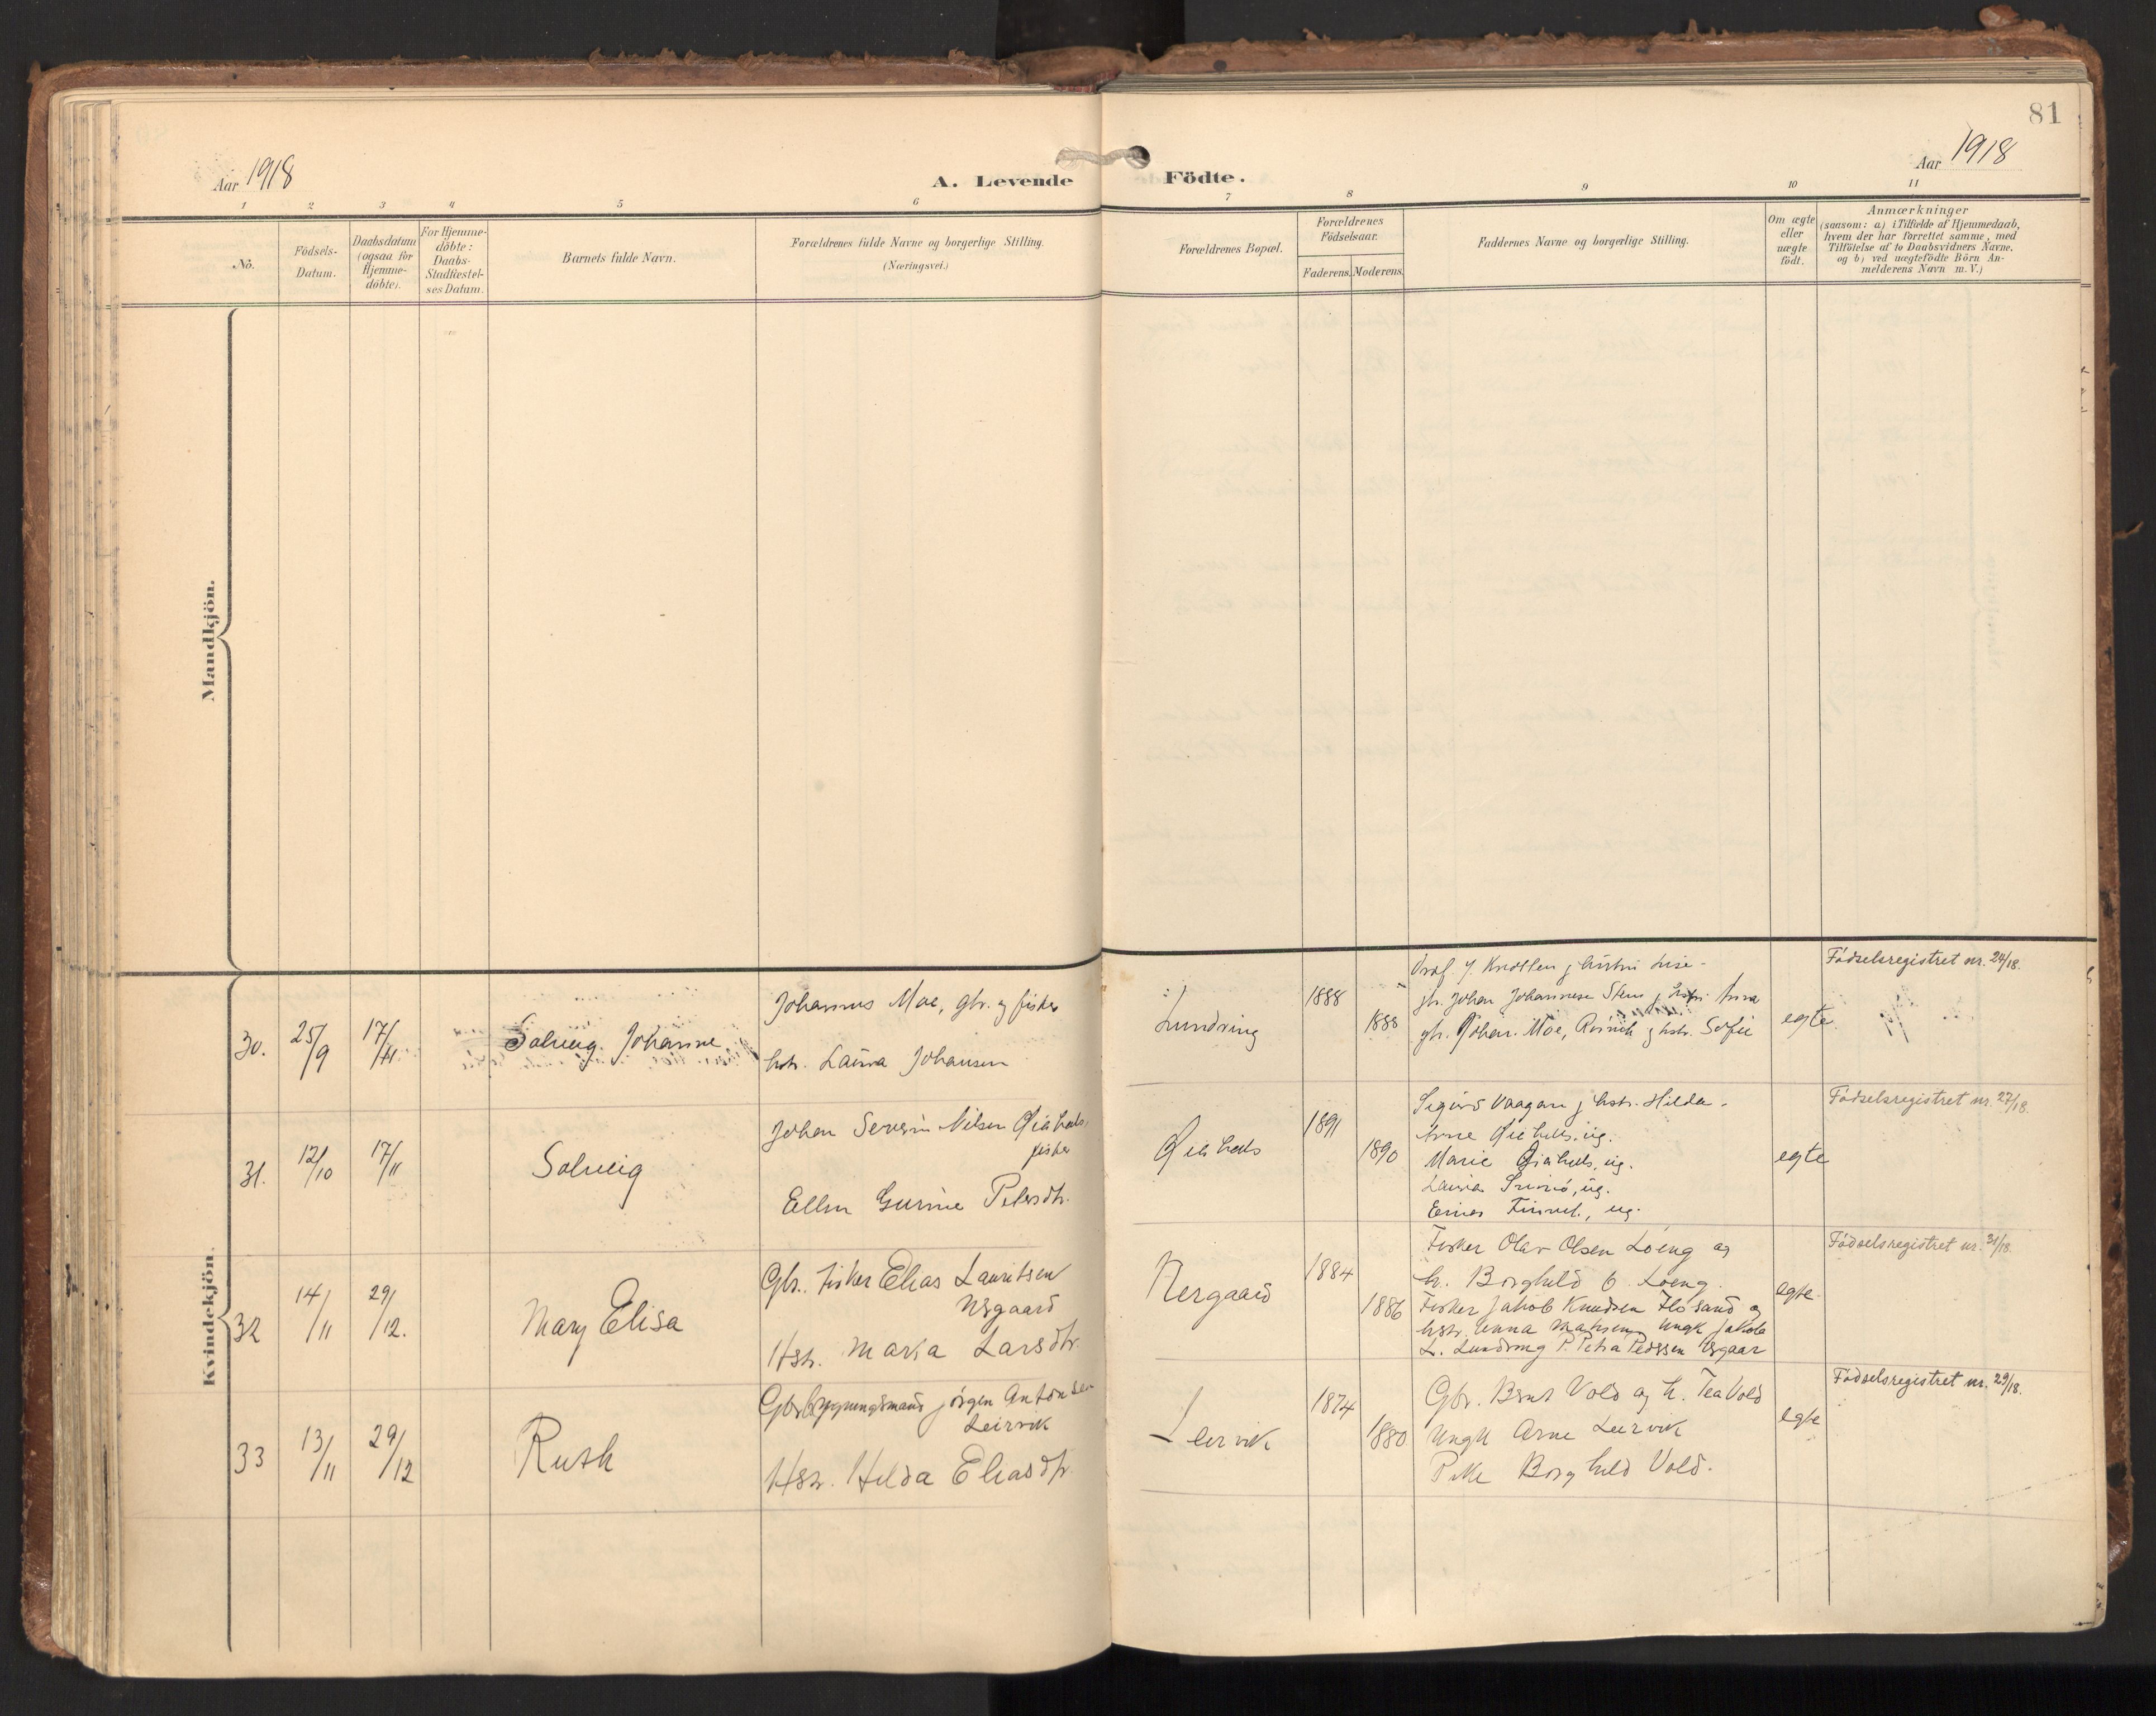 81
Aar 1918
Aar 1918
A. Levende Födte.
1 2 3 4 5 6 7 8 9 10 11
No.
Födsels-
Datum.
Daabsdatum
(ogsaa for
Hjemme-
döbte).
For Hjemme-
döbte:
Daabs-
Stadfæstel-
ses Datum.
Barnets fulde Navn.
Forældrenes fulde Navne og borgerlige Stilling.
(Næringsvei.)
Forældrenes Bopæl.
Forældrenes
Födselsaar.
Faderens. Moderens.
Faddernes Navne og borgerlige Stilling.
Om ægte
eller
uægte
födt.
Anmærkninger
(saasom: a) i Tilfælde af Hjemmedaab,
hvem der har forrettet samme, med
Tilföielse af to Daabsvidners Navne,
og b) ved uægtefödte Börn An-
melderens Navn m. V.)
Mandkjön.
Kvindekjön.
30. 25/9 17/11
Solveig Johanne
Johannes Moe, gbr. og fisker
hstr. Laura Johansen
Lundring
1888
1888
J. Knotten
gbr. Johan Johannesen
gbr. Johan Moe, hstr. Sofie
egte
Födselsregistret nr. 24/18.
31. 12/10 17/11
Solveig
Johan Severin Nilsen
fisker
Ellen Gurine Petersdtr.
1891
1890
Sigurd Vaagan hstr. Hilda
Marie
Laura
egte
Födselsregistret nr. 27/18.
32 14/11 29/12.
Mary Elisa
Gbr. fisker Elias Lauritsen
Nergaard
Hstr. Maria Larsdtr.
Nergaard
1884
1886
Fisker Olav Olsen Löeng og
h. Borghild O. Löeng.
Fisker Jakob Knudsen og
hstr. Anna Ungk Jakob
L. Lundring P. Petra Pedersen
egte
Födselsregistret nr. 31/18.
33 13/11 29/12
Ruth
Gbr. bygningsmand Jörgen Antonsen
Leirvik
Hstr. Hilda Eliasdtr.
Leirvik
1874
1880
Gbr. Bernt Vold og h. Tea Vold
Ungk Arne Leirvik
Pike Borghild Vold.
egte
Födselsregistret nr. 29/18.